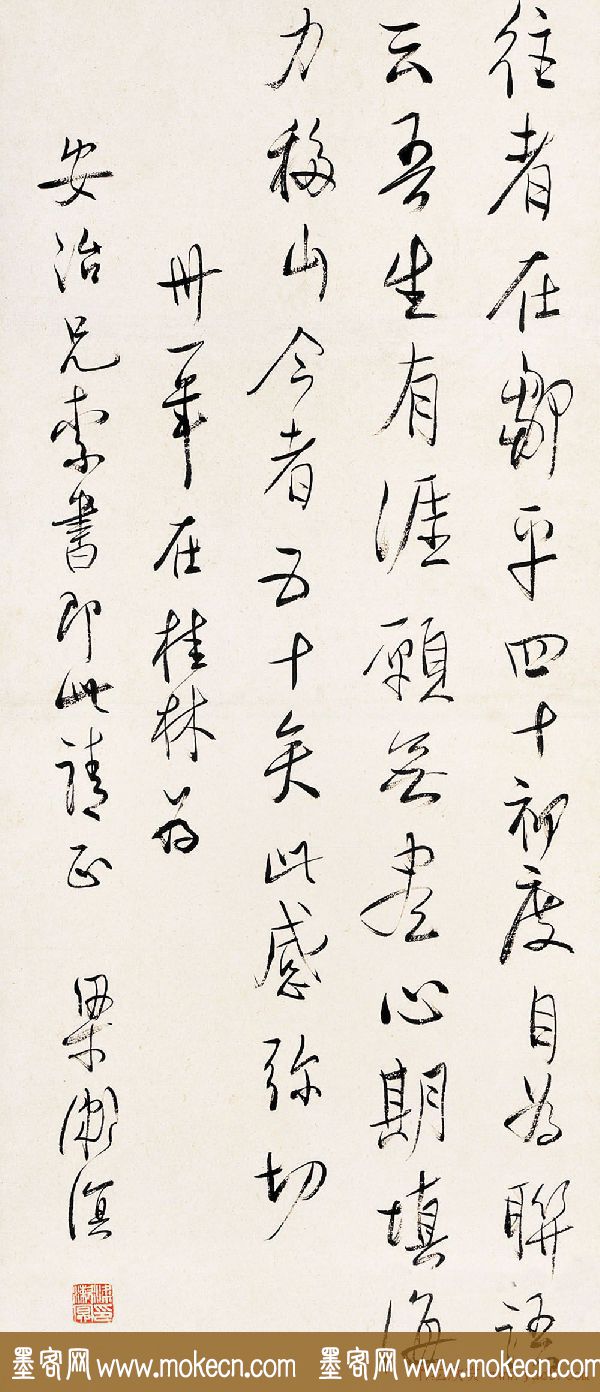 往者在鄒平四十初度自为聯語
云吾生有涯願无盡心期填海
力移山今者五十矣此感弥切
卅一年在桂林为
安治兄索書即此請正 梁漱溟
墨客网 www.mokecn.com 墨客网 www.mokecn.com